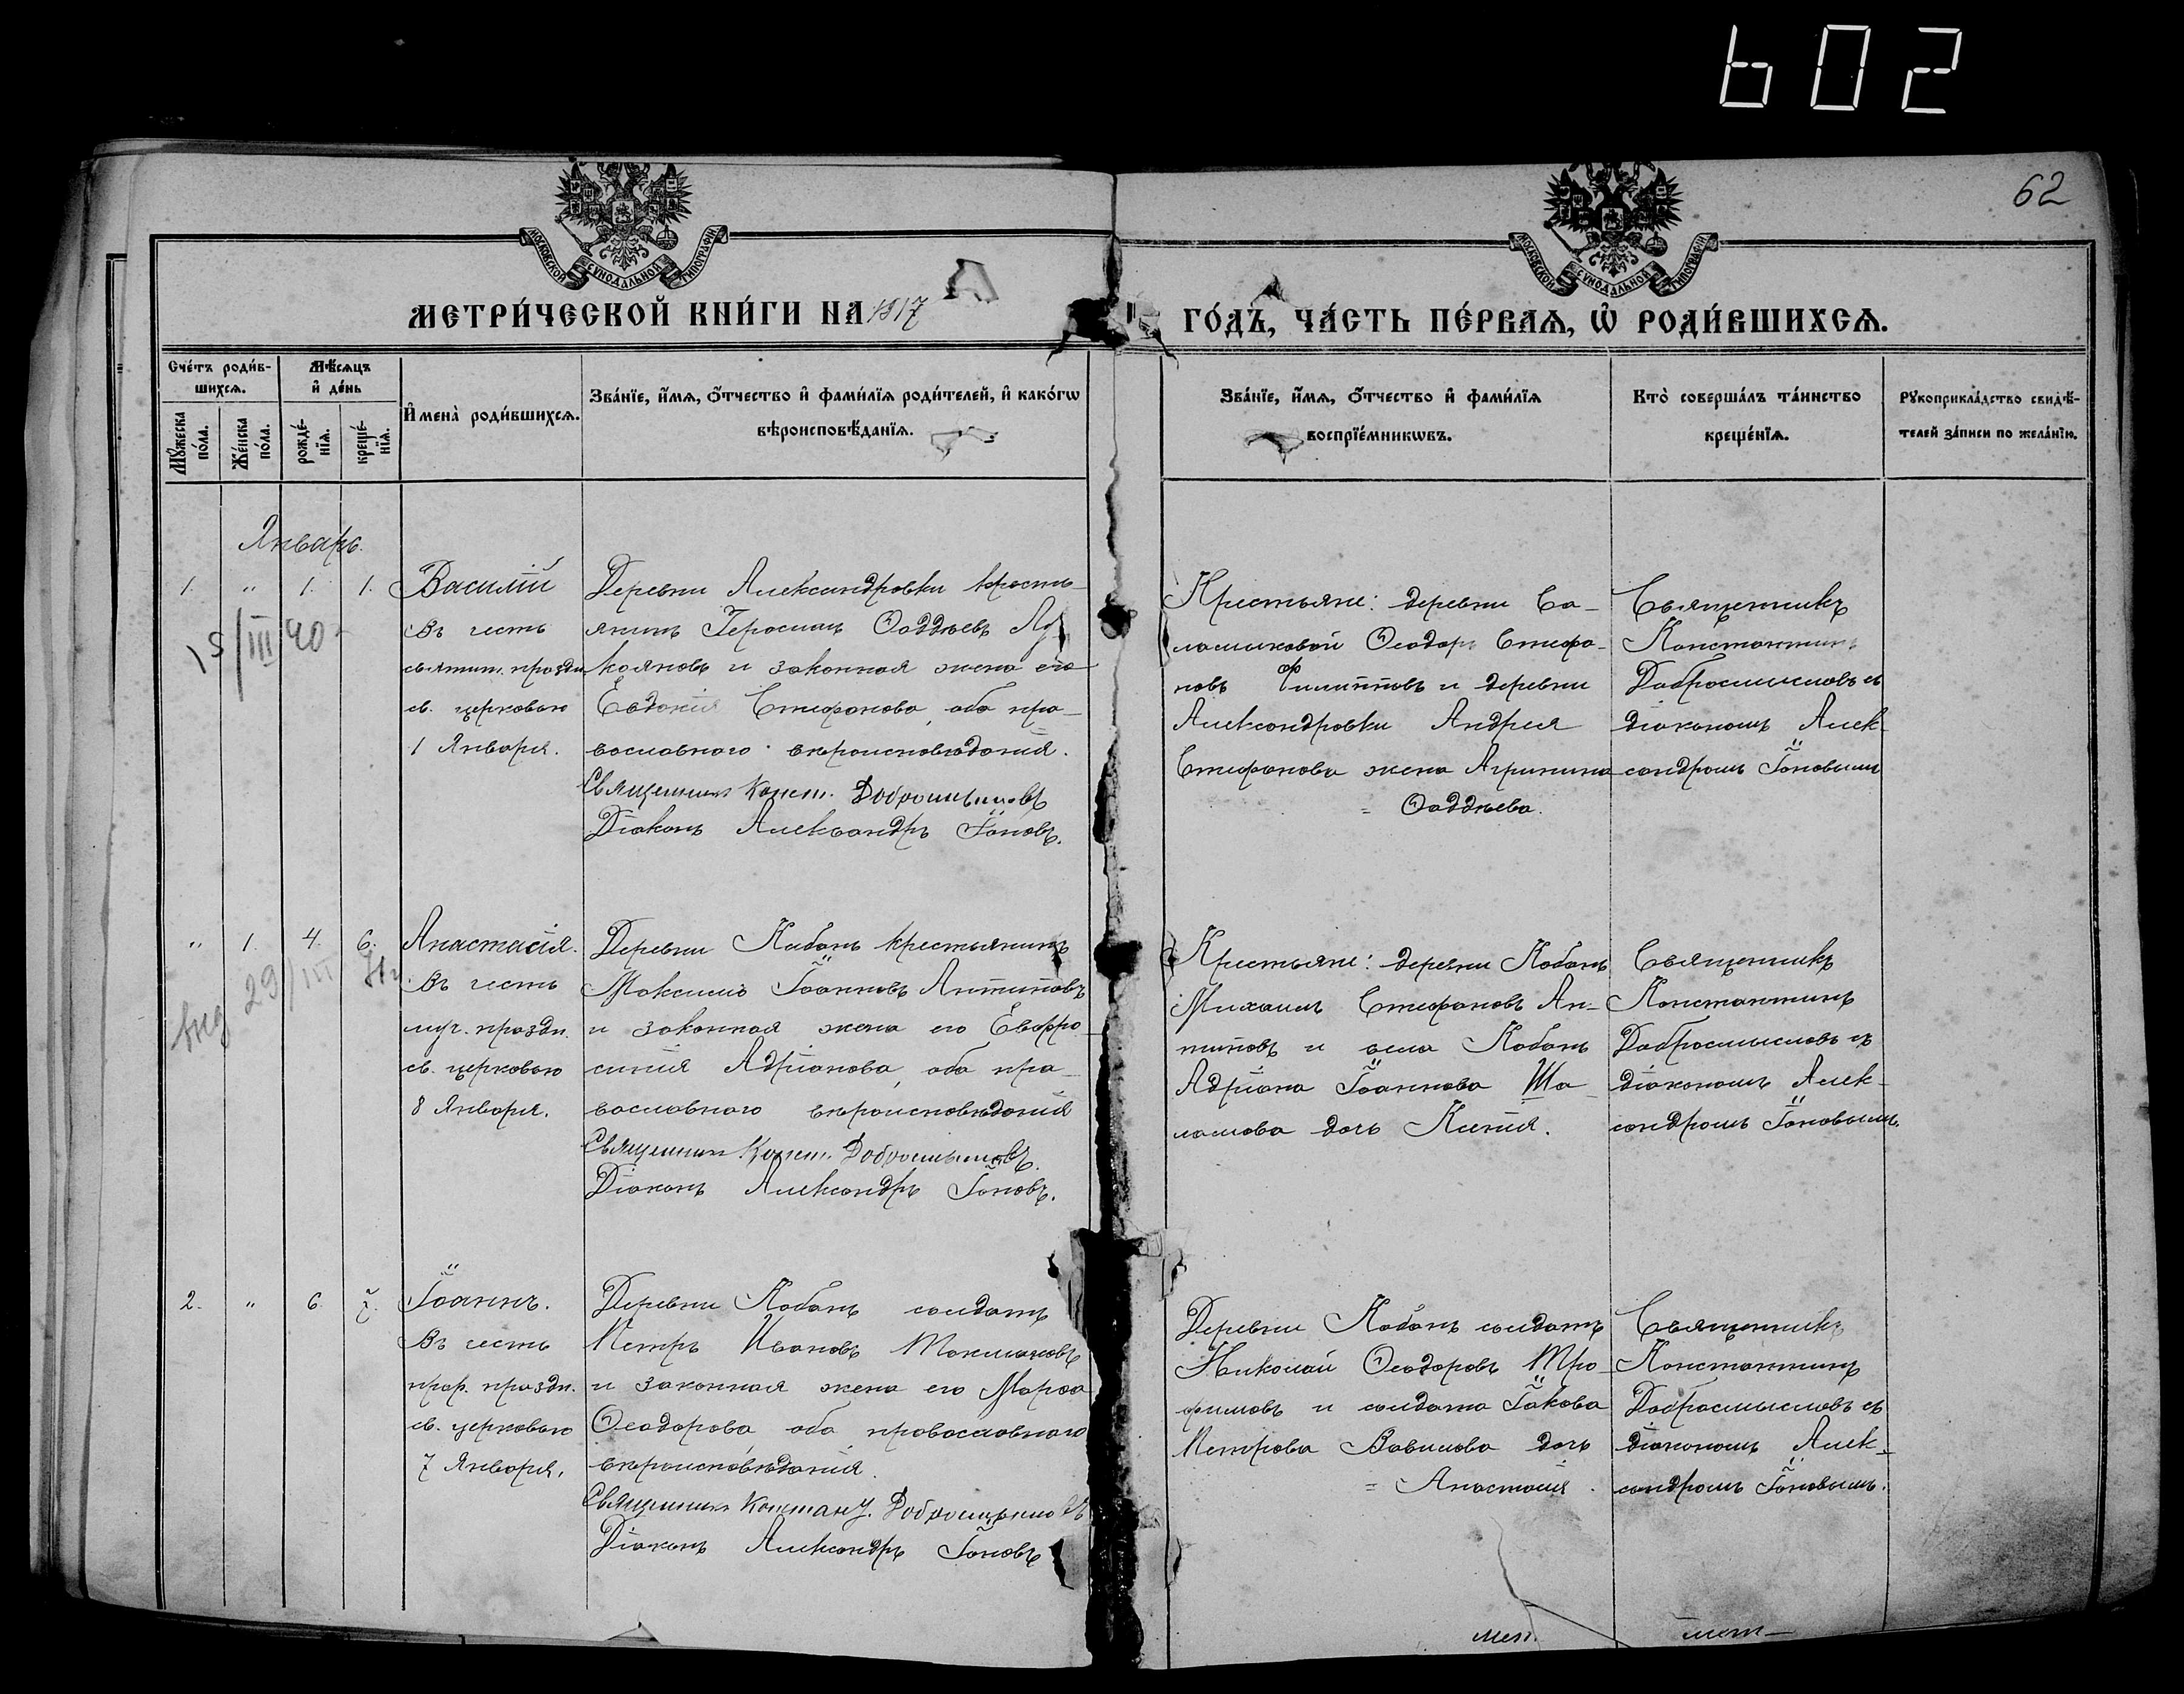 602
62
МОСКОВСКОЙ СѴНОДАЛЬНОЙ ТИПОГРАФІИ
МОСКОВСКОЙ СѴНОДАЛЬНОЙ ТИПОГРАФІИ
МЕТРИ́ЧЕСКОЙ КНИ́ГИ НА 1917
ГО́ДЪ, ЧА́СТЬ ПЕ́РВАѦ, Ѡ҆ РОДИ́ВШИХСѦ.
Сче́тъ роди́в-
шихсѧ.
Мꙋ́жеска по́ла.
Же́нска по́ла.
Мѣ́сѧцъ
и҆ де́нь
рожде́-нїѧ.
креще́-нїѧ.
И҆мена̀ роди́вшихсѧ.
Зва́нїе, и҆́мѧ, ѻ҆́тчество и҆ фами́лїѧ роди́телей, и҆ како́гѡ
вѣроисповѣ́данїѧ.
Зва́нїе, и҆́мѧ, ѻ҆́тчество и҆ фами́лїѧ
воспрїе́мникѡвъ.
Кто̀ соверша́лъ та́инство
креще́нїѧ.
Рꙋкоприкла́дство свидѣ́-
телей за́писи по жела́нїю.
Январь.
1. " 1. 1.
15/III 40
Василій
въ честь
святит. праздн.
св. церковью
1 Января.
Деревни Александровки кресть-
янинъ Герасимъ Ѳаддѣевъ
и законная жена его
Евдокія Стефанова, оба пра-
вославного вѣроисповѣданія.
Священникъ Конст. Добросмысловъ
Діаконъ Александръ Іоновъ.
Крестьяне: деревни Са-
ламыковой Ѳеодоръ Стефа-
новъ Филипповъ и деревни
Александровки Андрея
Стефанова жена Агрипина
= Ѳаддѣева.
Священникъ
Константинъ
Добросмысловъ съ
діакономъ Алек-
сандромъ Іоновымъ
" 1. 4. 6.
29/III
Анастасія.
Въ честь
муч. праздн.
св. церковью
8 Января.
Деревни Кабанъ крестьянинъ
Максимъ Іоанновъ Антиповъ
и законная жена его Евфро-
синія Адріанова, оба пра-
вославного вѣроисповѣданія
Священникъ Конст. Добросмысловъ.
Діаконъ Александръ Іоновъ.
Крестьяне: деревни Кабанъ
Михаилъ Стефановъ Ан-
типовъ и села Кабанъ
Адріана Іоаннова Ша-
ламова дочь Ксенія.
Священникъ
Константинъ
Добросмысловъ съ
діакономъ Алек-
сандромъ Іоновымъ.
2. " 6. 7.
Іоаннъ.
Въ честь
прор. праздн.
св. церковью
7 Января.
Деревни Кабанъ солдатъ
Петръ Ивановъ Токмаковъ
и законная жена его Марѳа
Ѳеодорова, оба православного
вѣроисповѣданія.
Священникъ Констант. Добросмысловъ
Діаконъ Александръ Іоновъ
Деревни Кабанъ солдатъ
Николай Ѳеодоровъ Тро-
фимовъ и солдата Іакова
Петрова Вавилова дочь
= Анастасія.
Священникъ
Константинъ
Добросмысловъ съ
діакономъ Алек-
сандромъ Іоновымъ.